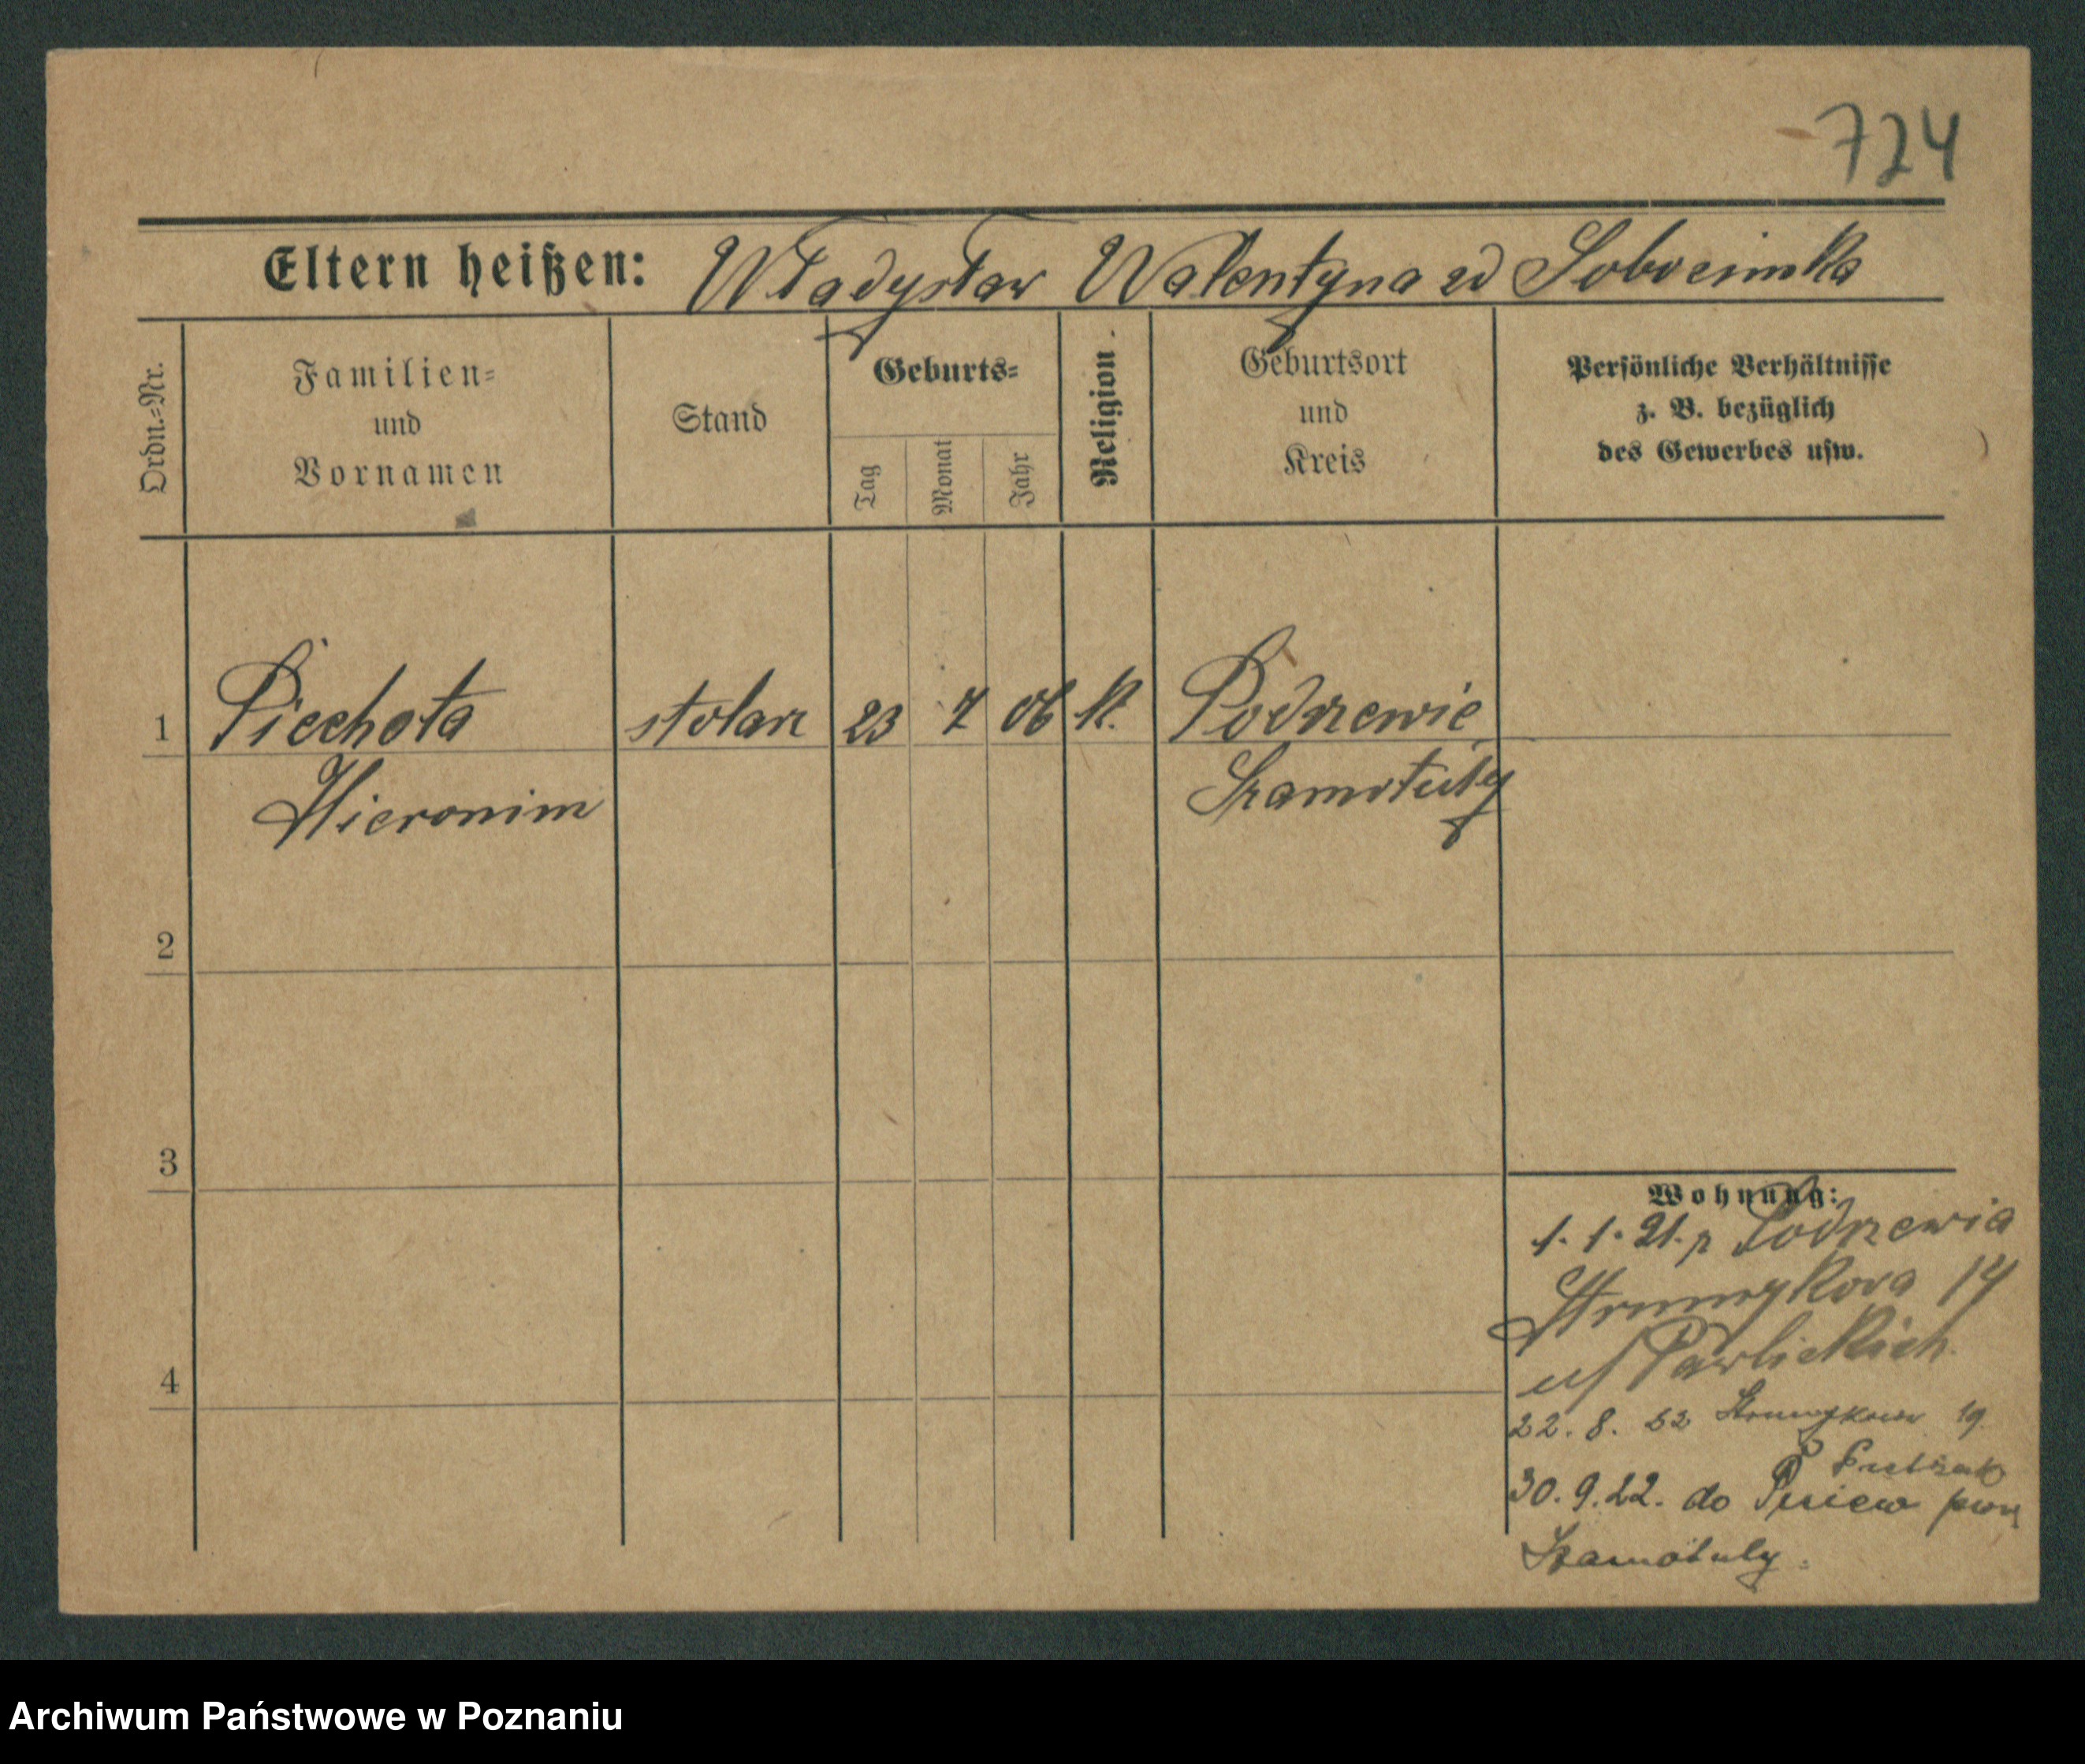 724
Eltern heißen: Władysław Walentyna zd Sobocinska
Ordn.-Nr.
Familien-
und
Vornamen
Stand
Geburts-
Tag
Monat
Jahr
Religion.
Geburtsort
und
Kreis
Persönliche Verhältnisse
z. B. bezüglich
des Gewerbes usw.
1 Piechota stolarz 23 7 06 k. Podrzewie
Hieronim Szamotuły
2
3
4
Wohnung:
1. 1. 21. z Podrzewia
Strumykowa 14
u/ Pawlickich
22. 8. 22 Strumykowa 19
30. 9. 22. do
Szamotuly.
Archiwum Państwowe w Poznaniu